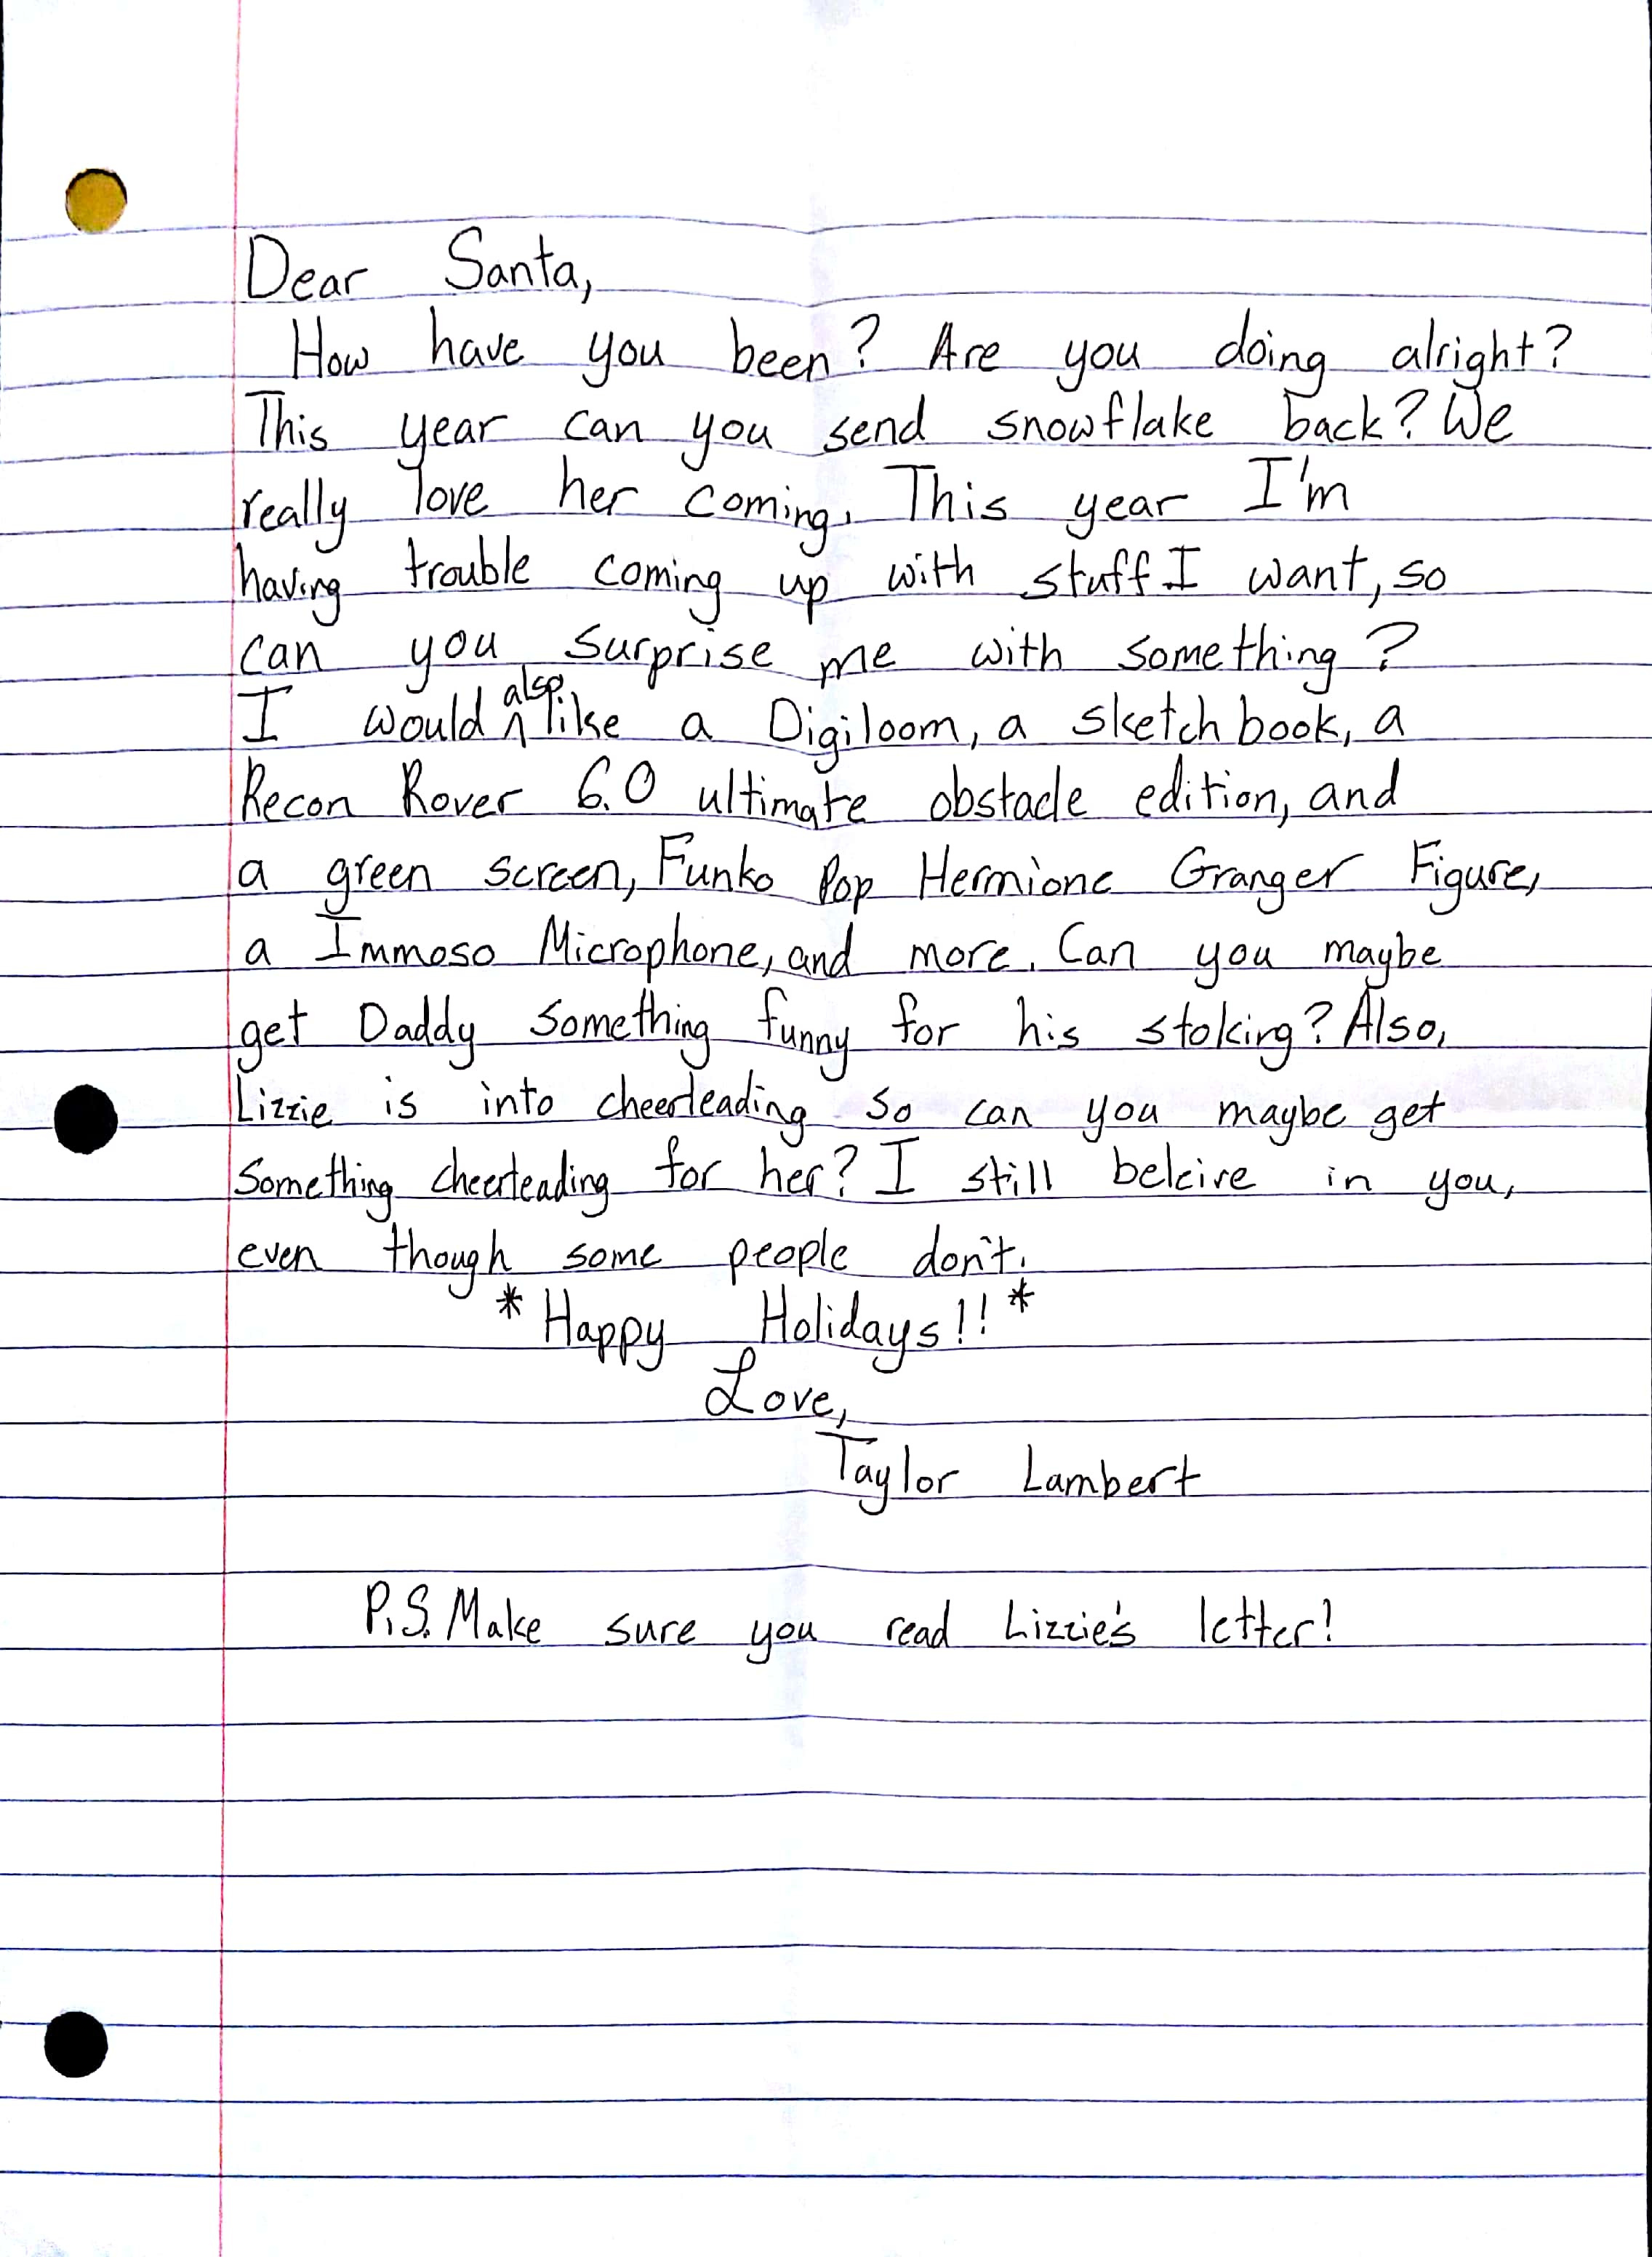 Dear Santa,
How have you been? Are you doing alright?
This year can you send snowflake back? We
really love her coming. This year I'm
having trouble coming up with stuff I want, so
can you surprise me with something?
I would ^also like a Digiloom, a sketch book, a
Recon Rover 6.0 ultimate obstacle edition, and
a green screen, Funko Pop Hermione Granger Figure,
a Immoso Microphone, and more. Can you maybe
get Daddy something funny for his stoking? Also,
Lizzie is into cheerleading so can you maybe get
Something cheerleading for her? I still beleive in you,
even though some people don't.
*Happy Holidays!!*
Love,
Taylor Lambert
P.S. Make sure you read Lizzie's letter!